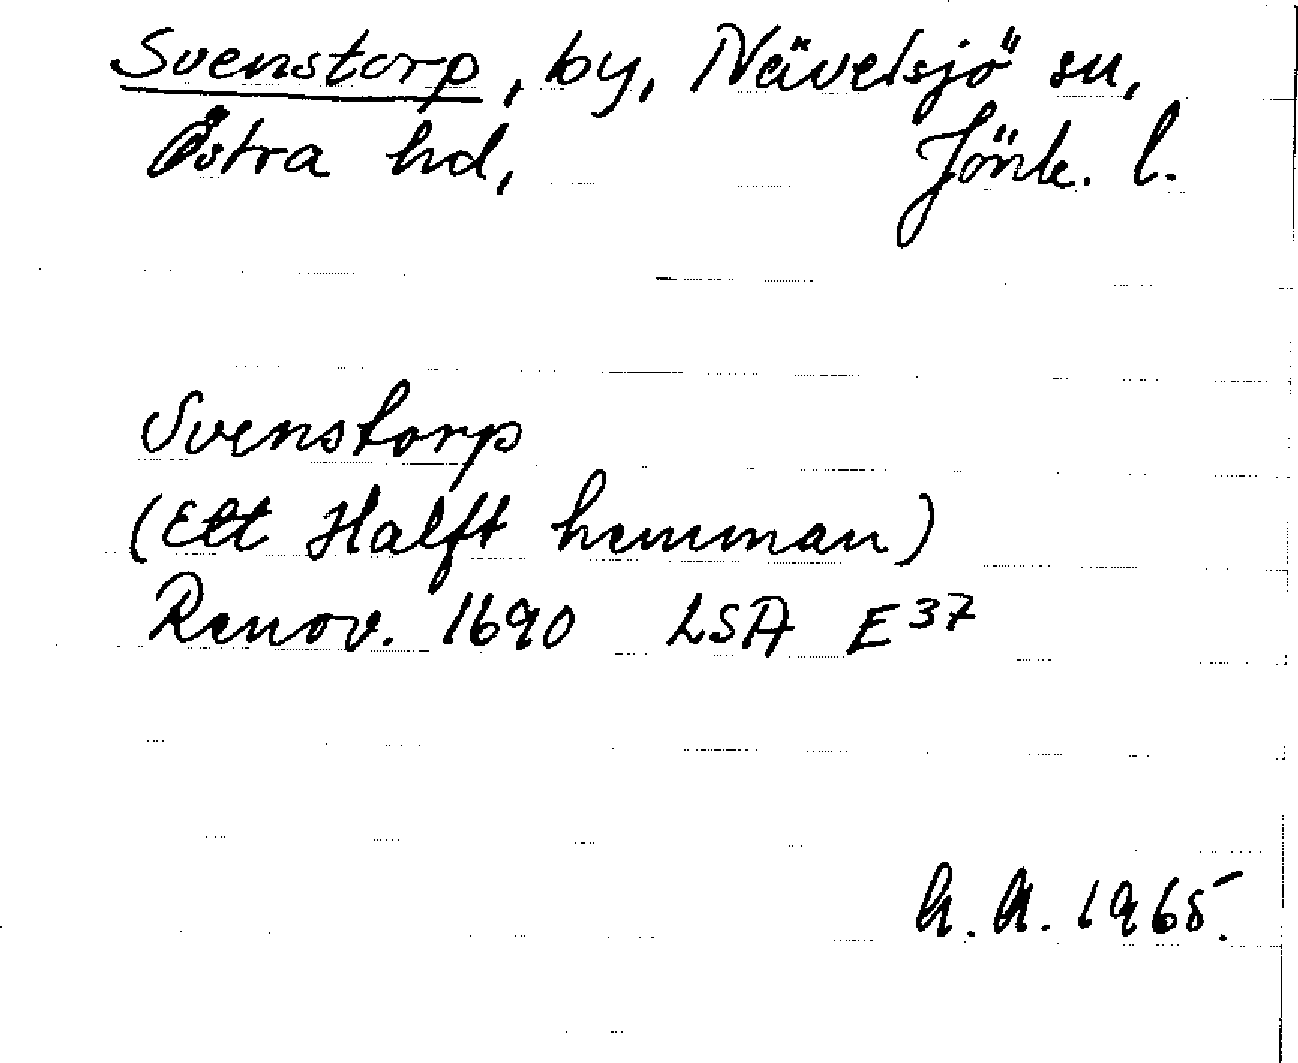 Svenstorp, by, Nävelsjö sn,
Östra hd, Jönk. l.
Svenstorp
(Ett Halft hemman)
Renov. 1690 LSA E37
1965.